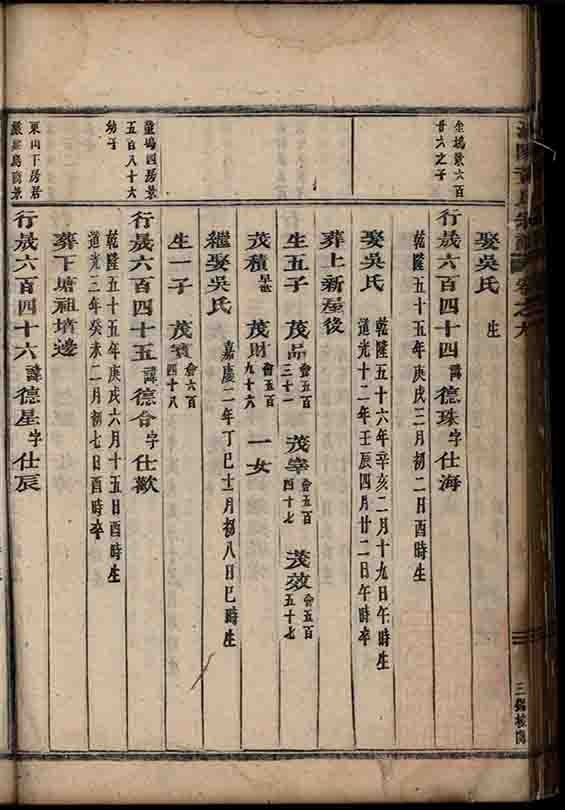 氏宗譜 卷之九
三錫校商
娶吳氏 生
坐塢景六百
廿六之子
行晟六百四十四 諱德珠 字仕海
乾隆五十五年庚戌三月初二日酉時生
娶吳氏
乾隆五十六年辛亥二月十九日午時生
道光十二年壬辰四月廿二日午時卒
葬上新屋後
生五子 茂品 會五百三十一 茂宰 會五百四十七 茂效 會五百五十七
茂積 早世 茂財 會五百九十六 一女
繼娶吳氏 嘉慶二年丁巳十月初八日巳時生
生一子 茂寶 會六百四十八
塢四居景
五百八十六
幼子
行晟六百四十五 諱德合 字仕歡
乾隆五十五年庚戌六月十五日酉時生
道光三年癸未二月初七日酉時卒
葬下塘祖墳邊
東山下房居
景
行晟六百四十六 諱德星 字仕辰